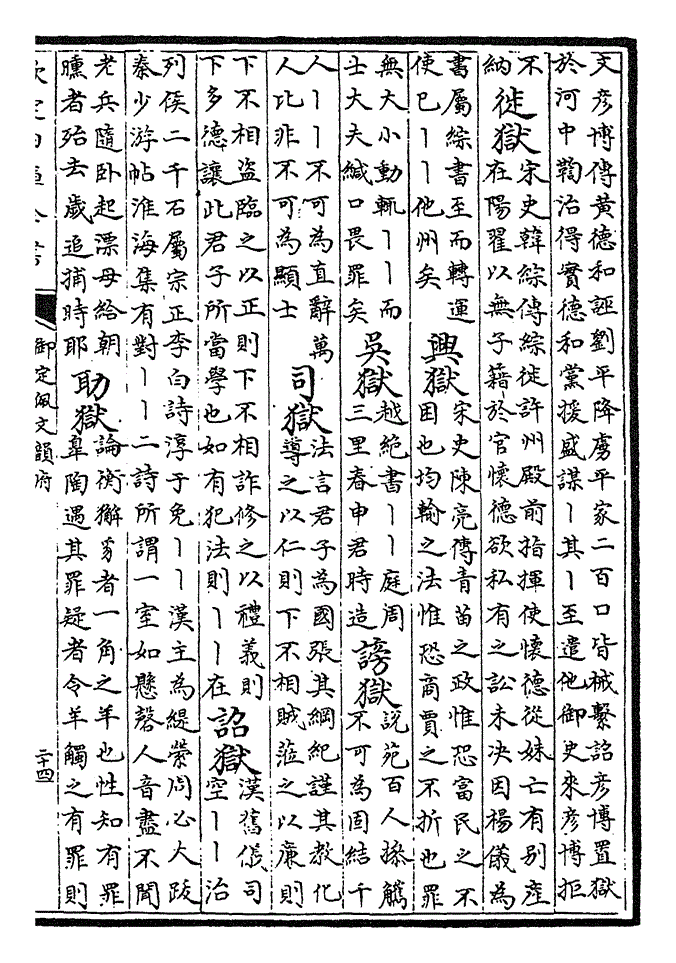 文彥博傳黃德和誣劉平降虜平家二百口皆械繫詔彥博置獄
於河中鞫治得實德和黨援盛謀丨其丨至遣他御史來彥博拒
不
納
徙獄
宋史韓綜傳綜徙許州殿前指揮使懷德從妹亡有別產
在陽翟以無子籍於官懷德欲私有之訟未決因楊儀為
書屬綜書至而轉運
使已丨丨他州矣
興獄
宋史陳亮傳青苗之政惟恐富民之不
困也均輸之法惟恐商賈之不折也罪
無大小動輒丨丨而
士大夫緘口畏罪矣
吳獄
越絕書丨丨庭周
三里春申君時造
謗獄
說苑百人操觿
不可為固結千
人丨丨不可為直辭萬
人比非不可為顯士
司獄
法言君子為國張其綱紀謹其教化
導之以仁則下不相賊蒞之以廉則
下不相盜臨之以正則下不相詐修之以禮義則
下多德讓此君子所當學也如有犯法則丨丨在
詔獄
漢舊儀司
空丨丨治
列侯二千石屬宗正李白詩淳于免丨丨漢主為緹縈周必大跋
秦少游帖淮海集有對丨丨二詩所謂一室如懸磬人音盡不聞
老兵隨卧起漂母給朝
曛者殆去歲追捕時耶
助獄
論衡獬豸者一角之羊也性知有罪
臯陶遇其罪疑者令羊觸之有罪則
欽定四庫全書
御定佩文韻府
二十四